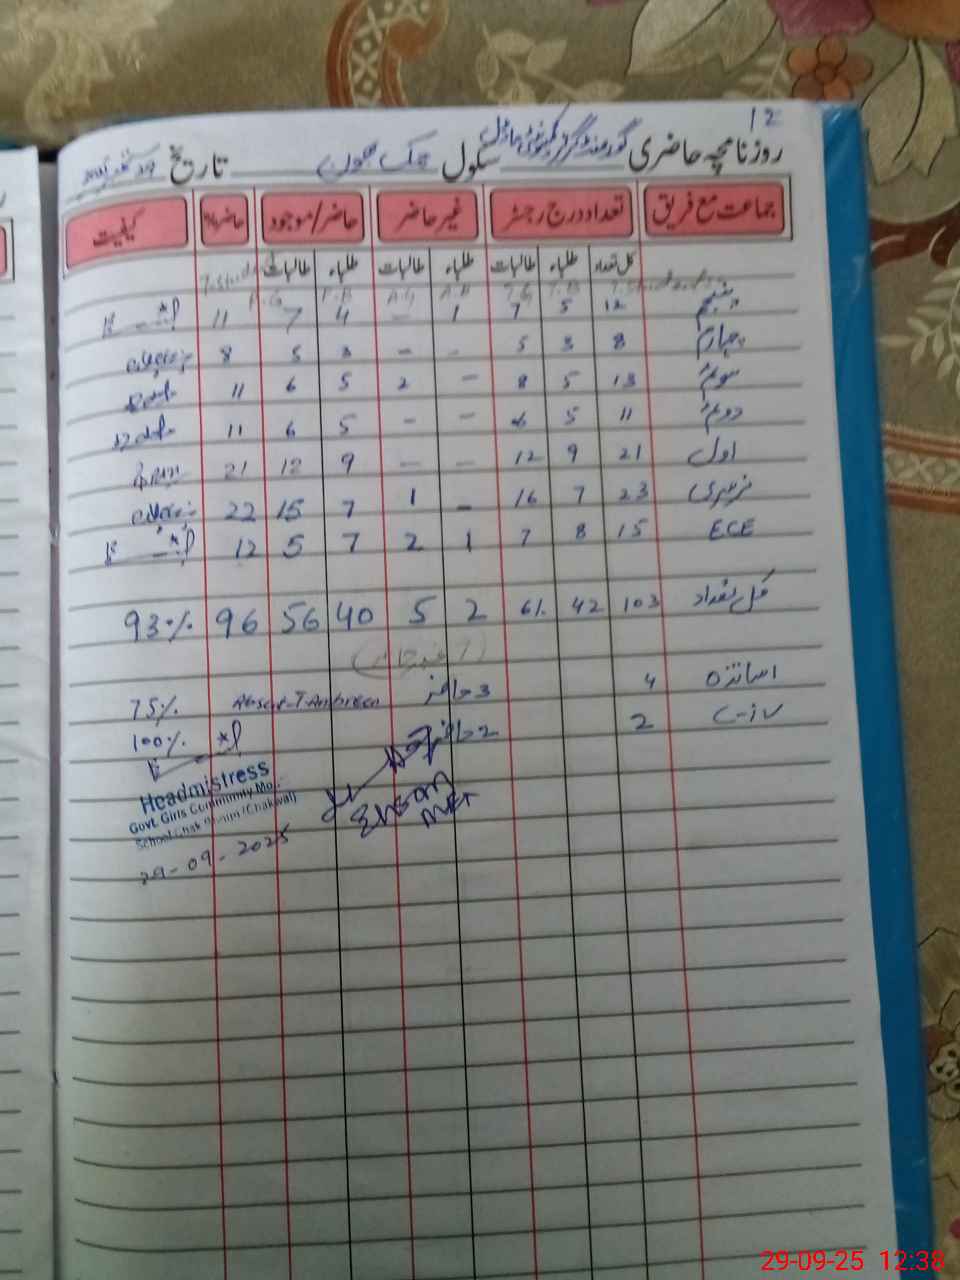 12
روزنامچہ حاضری گورنمنٹ گرلز کمیونٹی ماڈل سکول چک بھون تاریخ
جماعت مع فریق تعداد درج رجسٹر غیر حاضر حاضر/موجود حاضر% کیفیت
کل تعداد طلباء طالبات طلباء طالبات طلباء طالبات
T.Students T.B T.G A.B A.G P.B P.G T.Stud
پنجم 12 5 7 1 — 4 7 11
چہارم 8 3 5 - - 3 5 8
سوئم 13 5 8 - 2 5 6 11
دوئم 11 5 6 - - 5 6 11
اول 21 9 12 - - 9 12 21
نرسری 23 7 16 - 1 7 15 22
ECE 15 8 7 1 2 7 5 12
کل تعداد 103 42 61 2 5 40 56 96 93%
اساتذہ 4 3 حاضر Absent-T-Ambreen 75%
C-iv 2 2 حاضر 100%
Headmistress
Govt. Girls Community Mo
School Chak (Chakwal)
29-09-2025
29-09-25 12:38